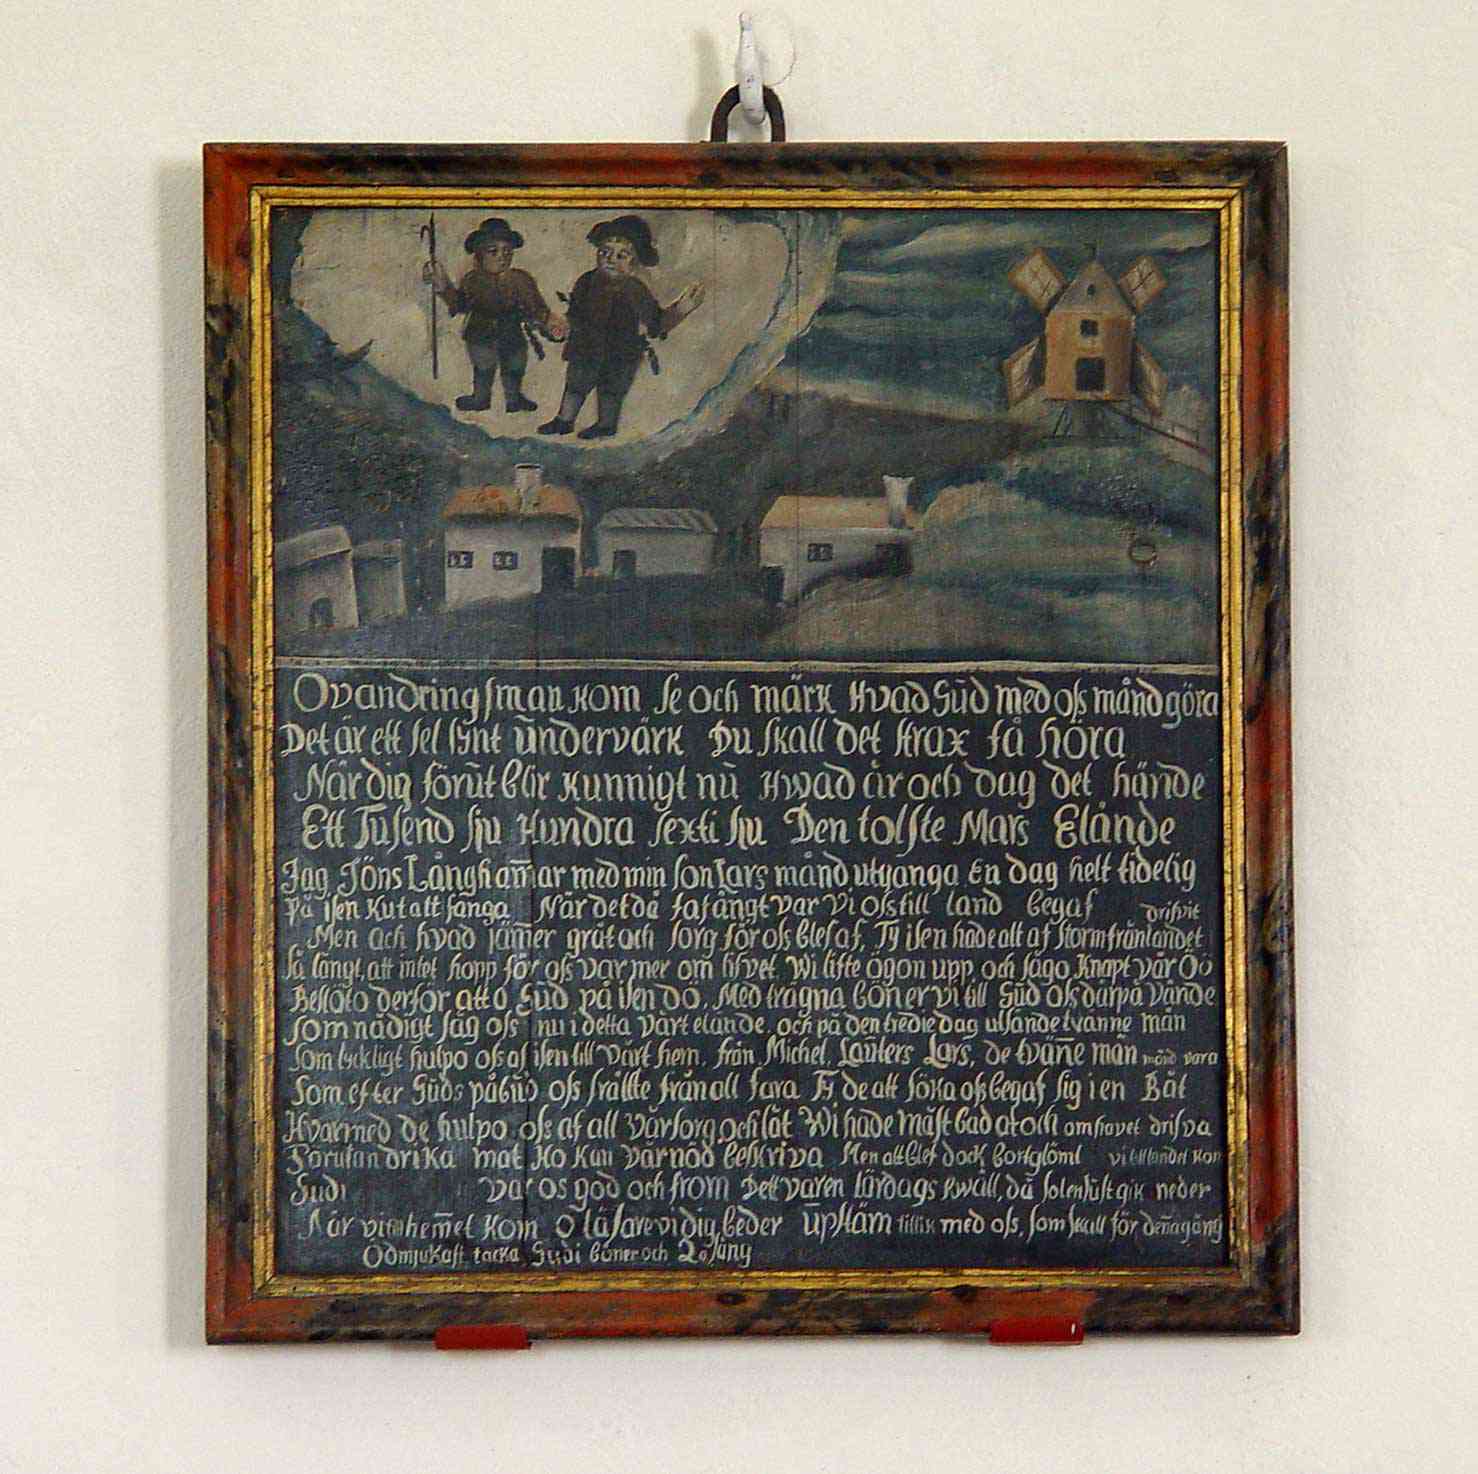 O vandringsman kom se och märk Hvad Gud med oss månd göra
Det är ett sel synt undervärk Du skall det strax få höra
När dig förut blir kunnigt nu Hwad år och dag det hände
Ett Tusend sju Hundra sexti sju Den tolfte Mars Elände
Jag Jöns Långham̄ar med min son Lars månd utganga En dag helt tidelig
På isen Kutatt fånga När det då fafängt var Vi oss till land begaf
Men ack hvad jäm̄er gråt och sorg för oss blef af, Ty isen hade alt af storm från landet drifvit
så långt, att intet hopp för oss var mer om lifvet. Wi lifte ögon upp, och sågo Knapt vår Öö
Beslöto derför att o Gud på isen dö. Med trägna böner vi till Gud oss därpå vände
som nådigt såg oss nu i detta vårt elande. och på den tredie dag utsände tvänne män
som lyckligt hulpo oss af isen till vårt hem. från Michel, Lauters Lars, de tvän̄e män månd vara
Som efter Guds påbud oss frälste från all fara Ty de att söka oss begaf sig i en Båt
Hvarmed de hulpo oss af all vår sorg och låt Wi hade mäst bad at och omhavet drifva
Förutan drika mat Ho Kan vår nöd beskriva Men alt blef dock bortglömt vi till landet kom
Gudi var os god och from Dett varen lärdags kwäll, då solen just gik neder
När vi hem̄et Kom O läsare vi dig beder upstäm tillik med oss, som skall för den̄a gång
Ödmjukast tacka Gudi böner och Lofsång